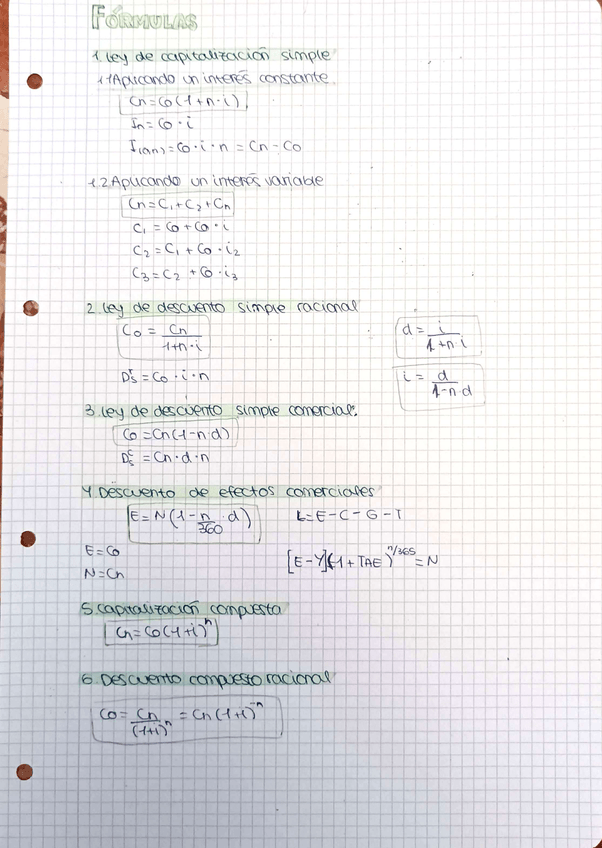 FÓRMULAS
1. Ley de capitalización simple
1.1 Aplicando un interés constante.
Cn = Co (1 + n · i)
In = Co · i
I(o,n) = Co · i · n = Cn - Co
1.2. Aplicando un interés variable
Cn = C₁ + C₂ + Cn
C₁ = Co + Co · i
C₂ = C₁ + Co · i₂
C₃ = C₂ + Co · i₃
2. Ley de descuento simple racional
Co = Cn / 1+n·i
d = i / 1+n·i
Dsʳ = Co · i · n
i = d / 1-n·d
3. Ley de descuento simple comercial.
Co = Cn (1 - n·d)
Dsᶜ = Cn · d · n
4. Descuento de efectos comerciales
E = N (1 - n/360 · d)
L = E - C - G - T
E = Co
[E - Y] (1 + TAE)^n/365 = N
N = Cn
5. Capitalización compuesta
Cn = Co (1+i)ⁿ
6. Descuento compuesto racional
Co = Cn / (1+i)ⁿ = Cn (1+i)⁻ⁿ